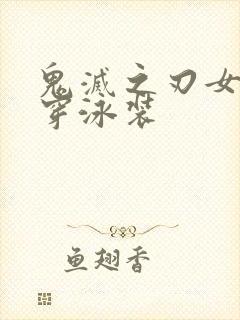 鬼滅之刃女
穿泳装
鱼翅香